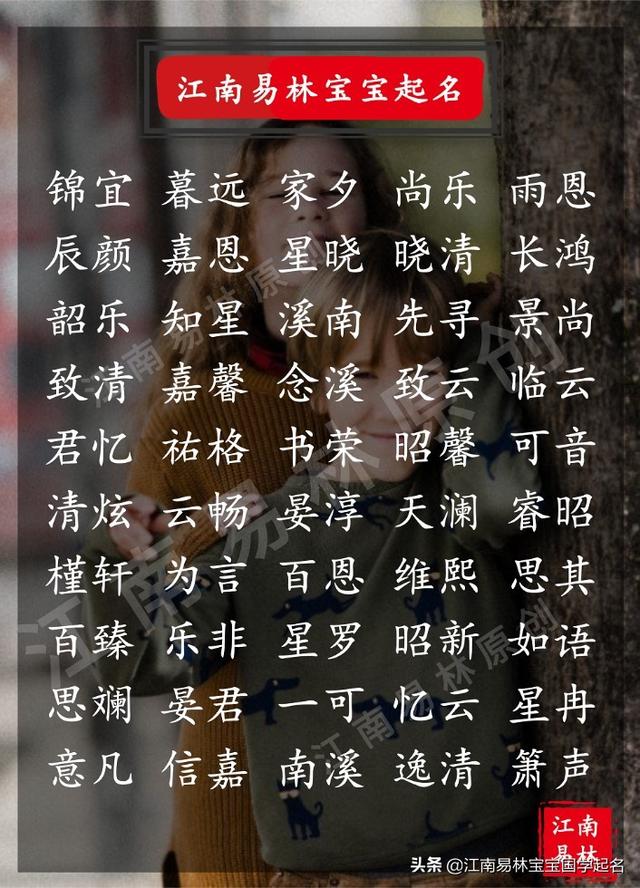 江南易林宝宝起名
锦宜 暮远 家夕 尚乐 雨恩
辰颜 嘉恩 星晓 晓清 长鸿
韶乐 知星 溪南 先寻 景尚
致清 嘉馨 念溪 致云 临云
君忆 祐格 书荣 昭馨 可音
清炫 云畅 晏淳 天澜 睿昭
槿轩 为言 百恩 维熙 思其
百臻 乐非 星罗 昭新 如语
思斓 晏君 一可 忆云 星冉
意凡 信嘉 南溪 逸清 箫声
江南易林原创
江南易林原创
江南易林原创
江南
易林
头条 @江南易林宝宝国学起名